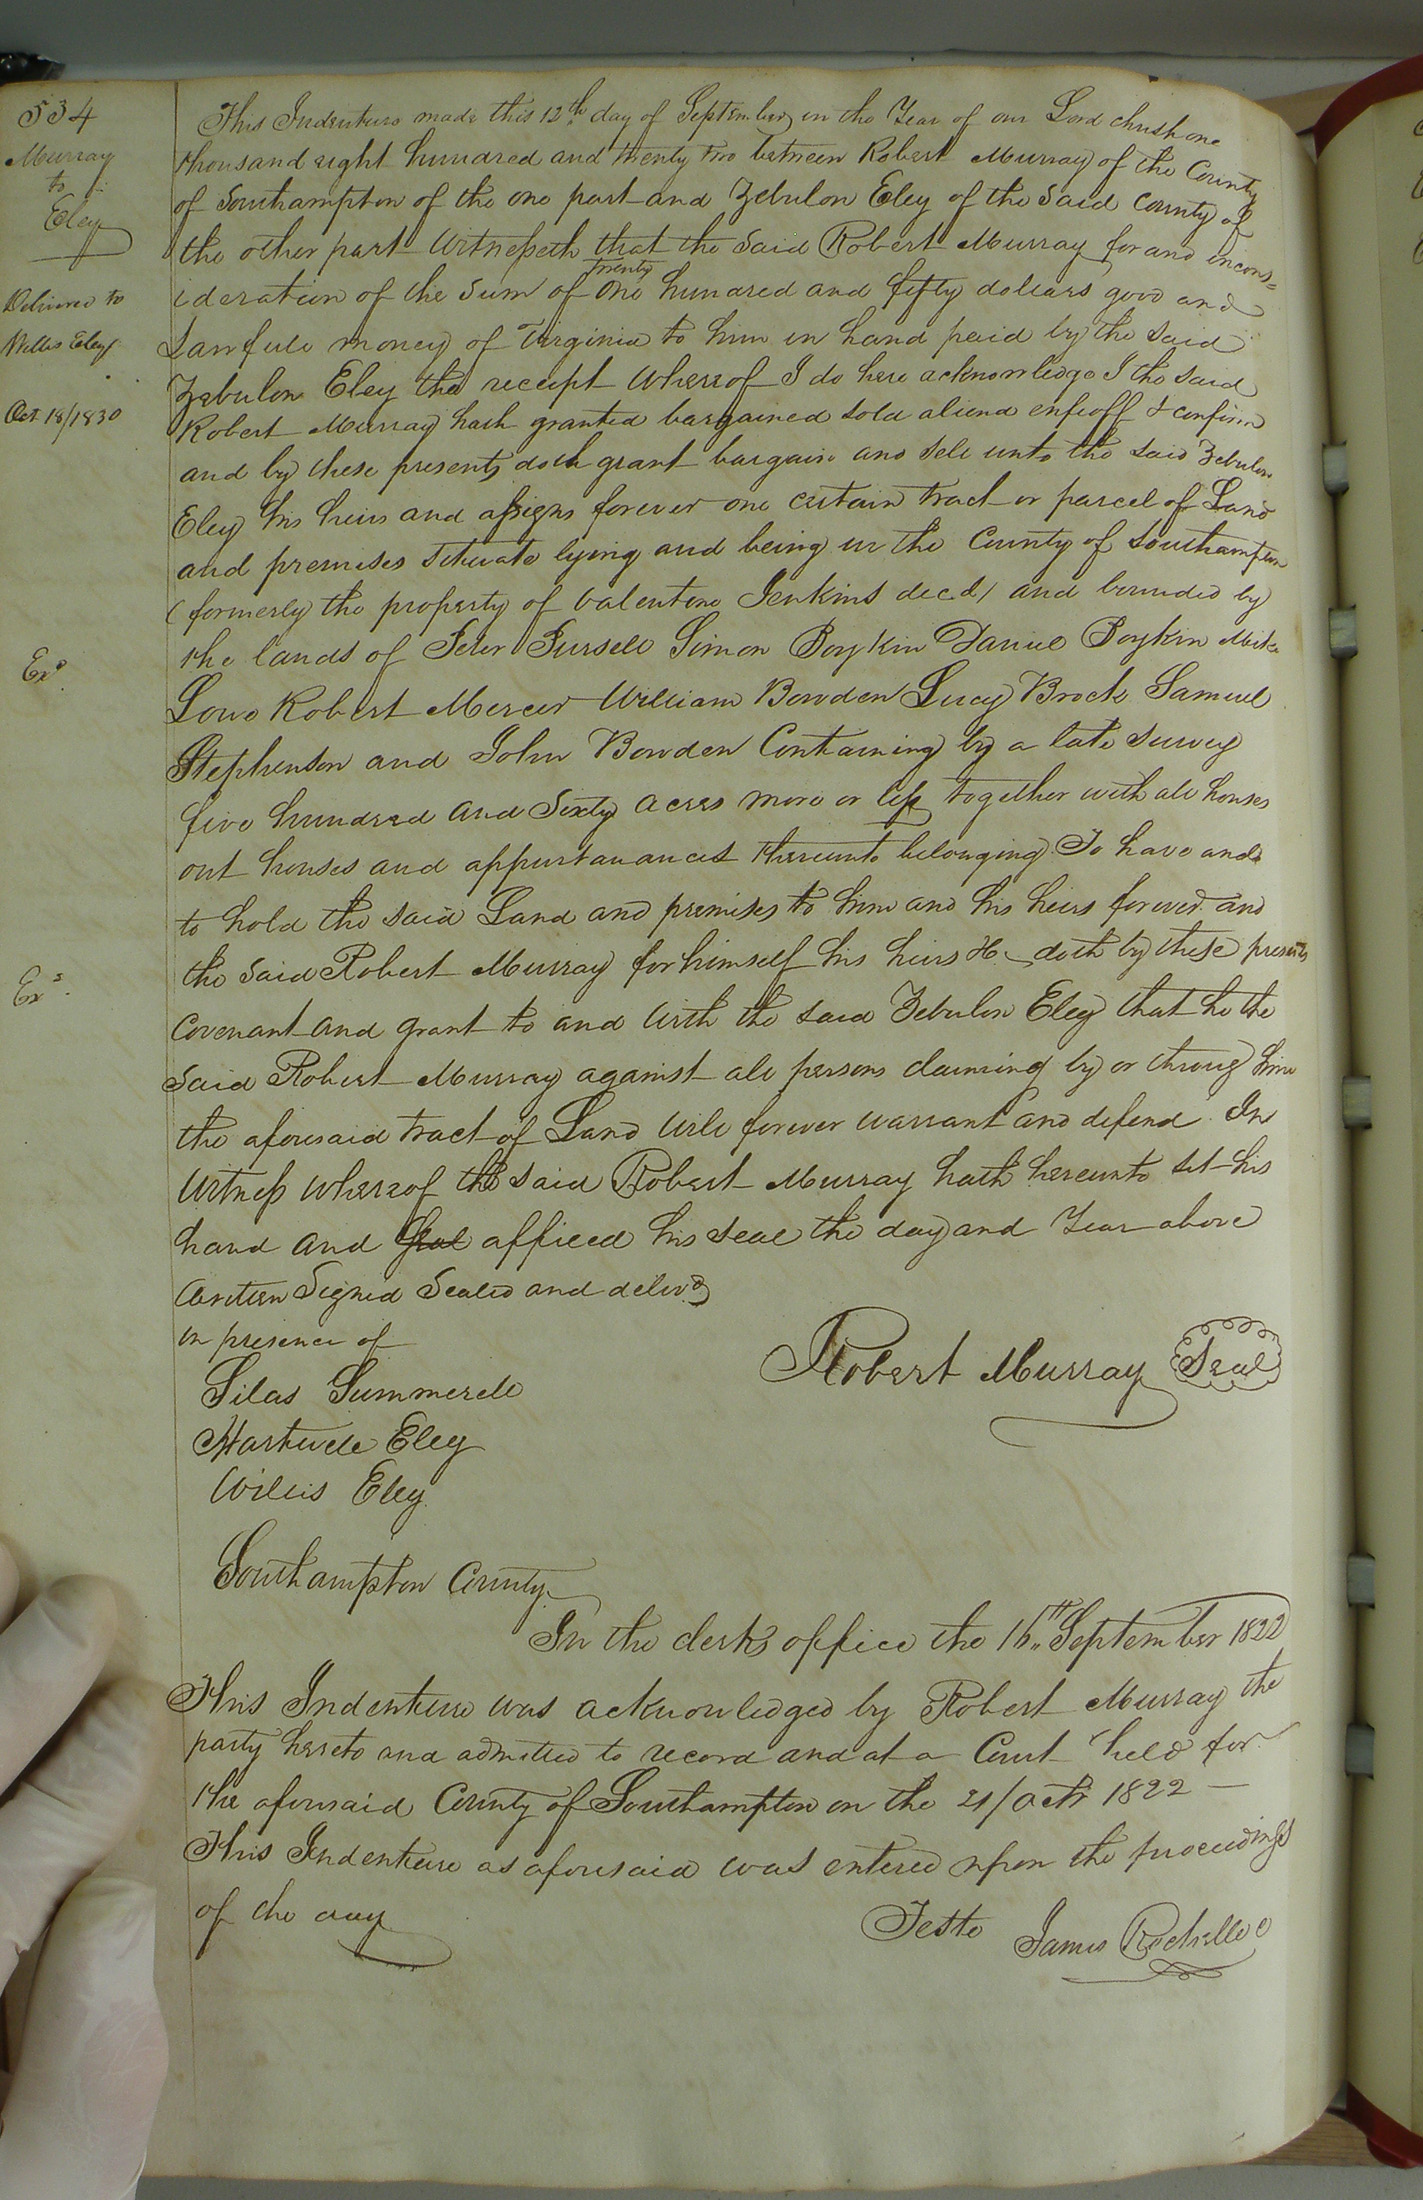 534
Murray
to
Eley
Delivered to
Willis Eley
Oct 18/1830
Exd
Exd
This Indenture made this 12th day of September in the Year of our Lord christ one
thousand eight hundred and twenty two between Robert Murray of the County
of Southampton of the one part and Zebulon Eley of the Said County of
the other part Witnesseth that the Said Robert Murray for and incons=
twenty
ideration of the Sum of One hundred and fifty dollars good and
Lawfull money of Virginia to him in hand paid by the said
Zebulon Eley the receipt whereof I do here acknowledge I the said
Robert Murray hath granted bargained sold aliend enfeoff & confirm
and by these presents doth grant bargain and sell unto the said Zebulon
Eley his heirs and assigns forever one certain tract or parcel of Land
and premises Situate lying and being in the County of Southampton
(formerly the property of Valentine Jenkins decd) and bounded by
the lands of Peter Fursell Simon Boykin Daniel Boykin
Love Robert Mercer William Bowden Lucy Brock Samuel
Stephenson and John Bowden Containing by a late survey
five hundred and Sixty acres more or less together with all houses
out houses and appurtanances thereunto belonging To have and
to hold the said Land and premises to him and his heirs forever and
the Said Robert Murray for himself his heirs &c doth by these presents
Covenant and grant to and with the said Zebulon Eley that he the
Said Robert Murray against all persons claiming by or throug him
the aforesaid tract of Land will forever warrant and defend In
Witness whereof the said Robert Murray hath hereunto set his
hand and Seal affixed his seal the day and Year above
Written Signed Sealed and delivd
in presence of
Robert Murray Seal
Silas Summerell
Hartwell Eley
Willis Eley
Southampton County
In the clerks office the 16th September 1822
This Indenture was acknowledged by Robert Murray the
party hereto and admitted to record and at a Court held for
the aforesaid County of Southampton on the 21/Octr 1822 —
This Indenture as aforesaid was entered upon the proceedings
of the day
Teste James Rochelle C